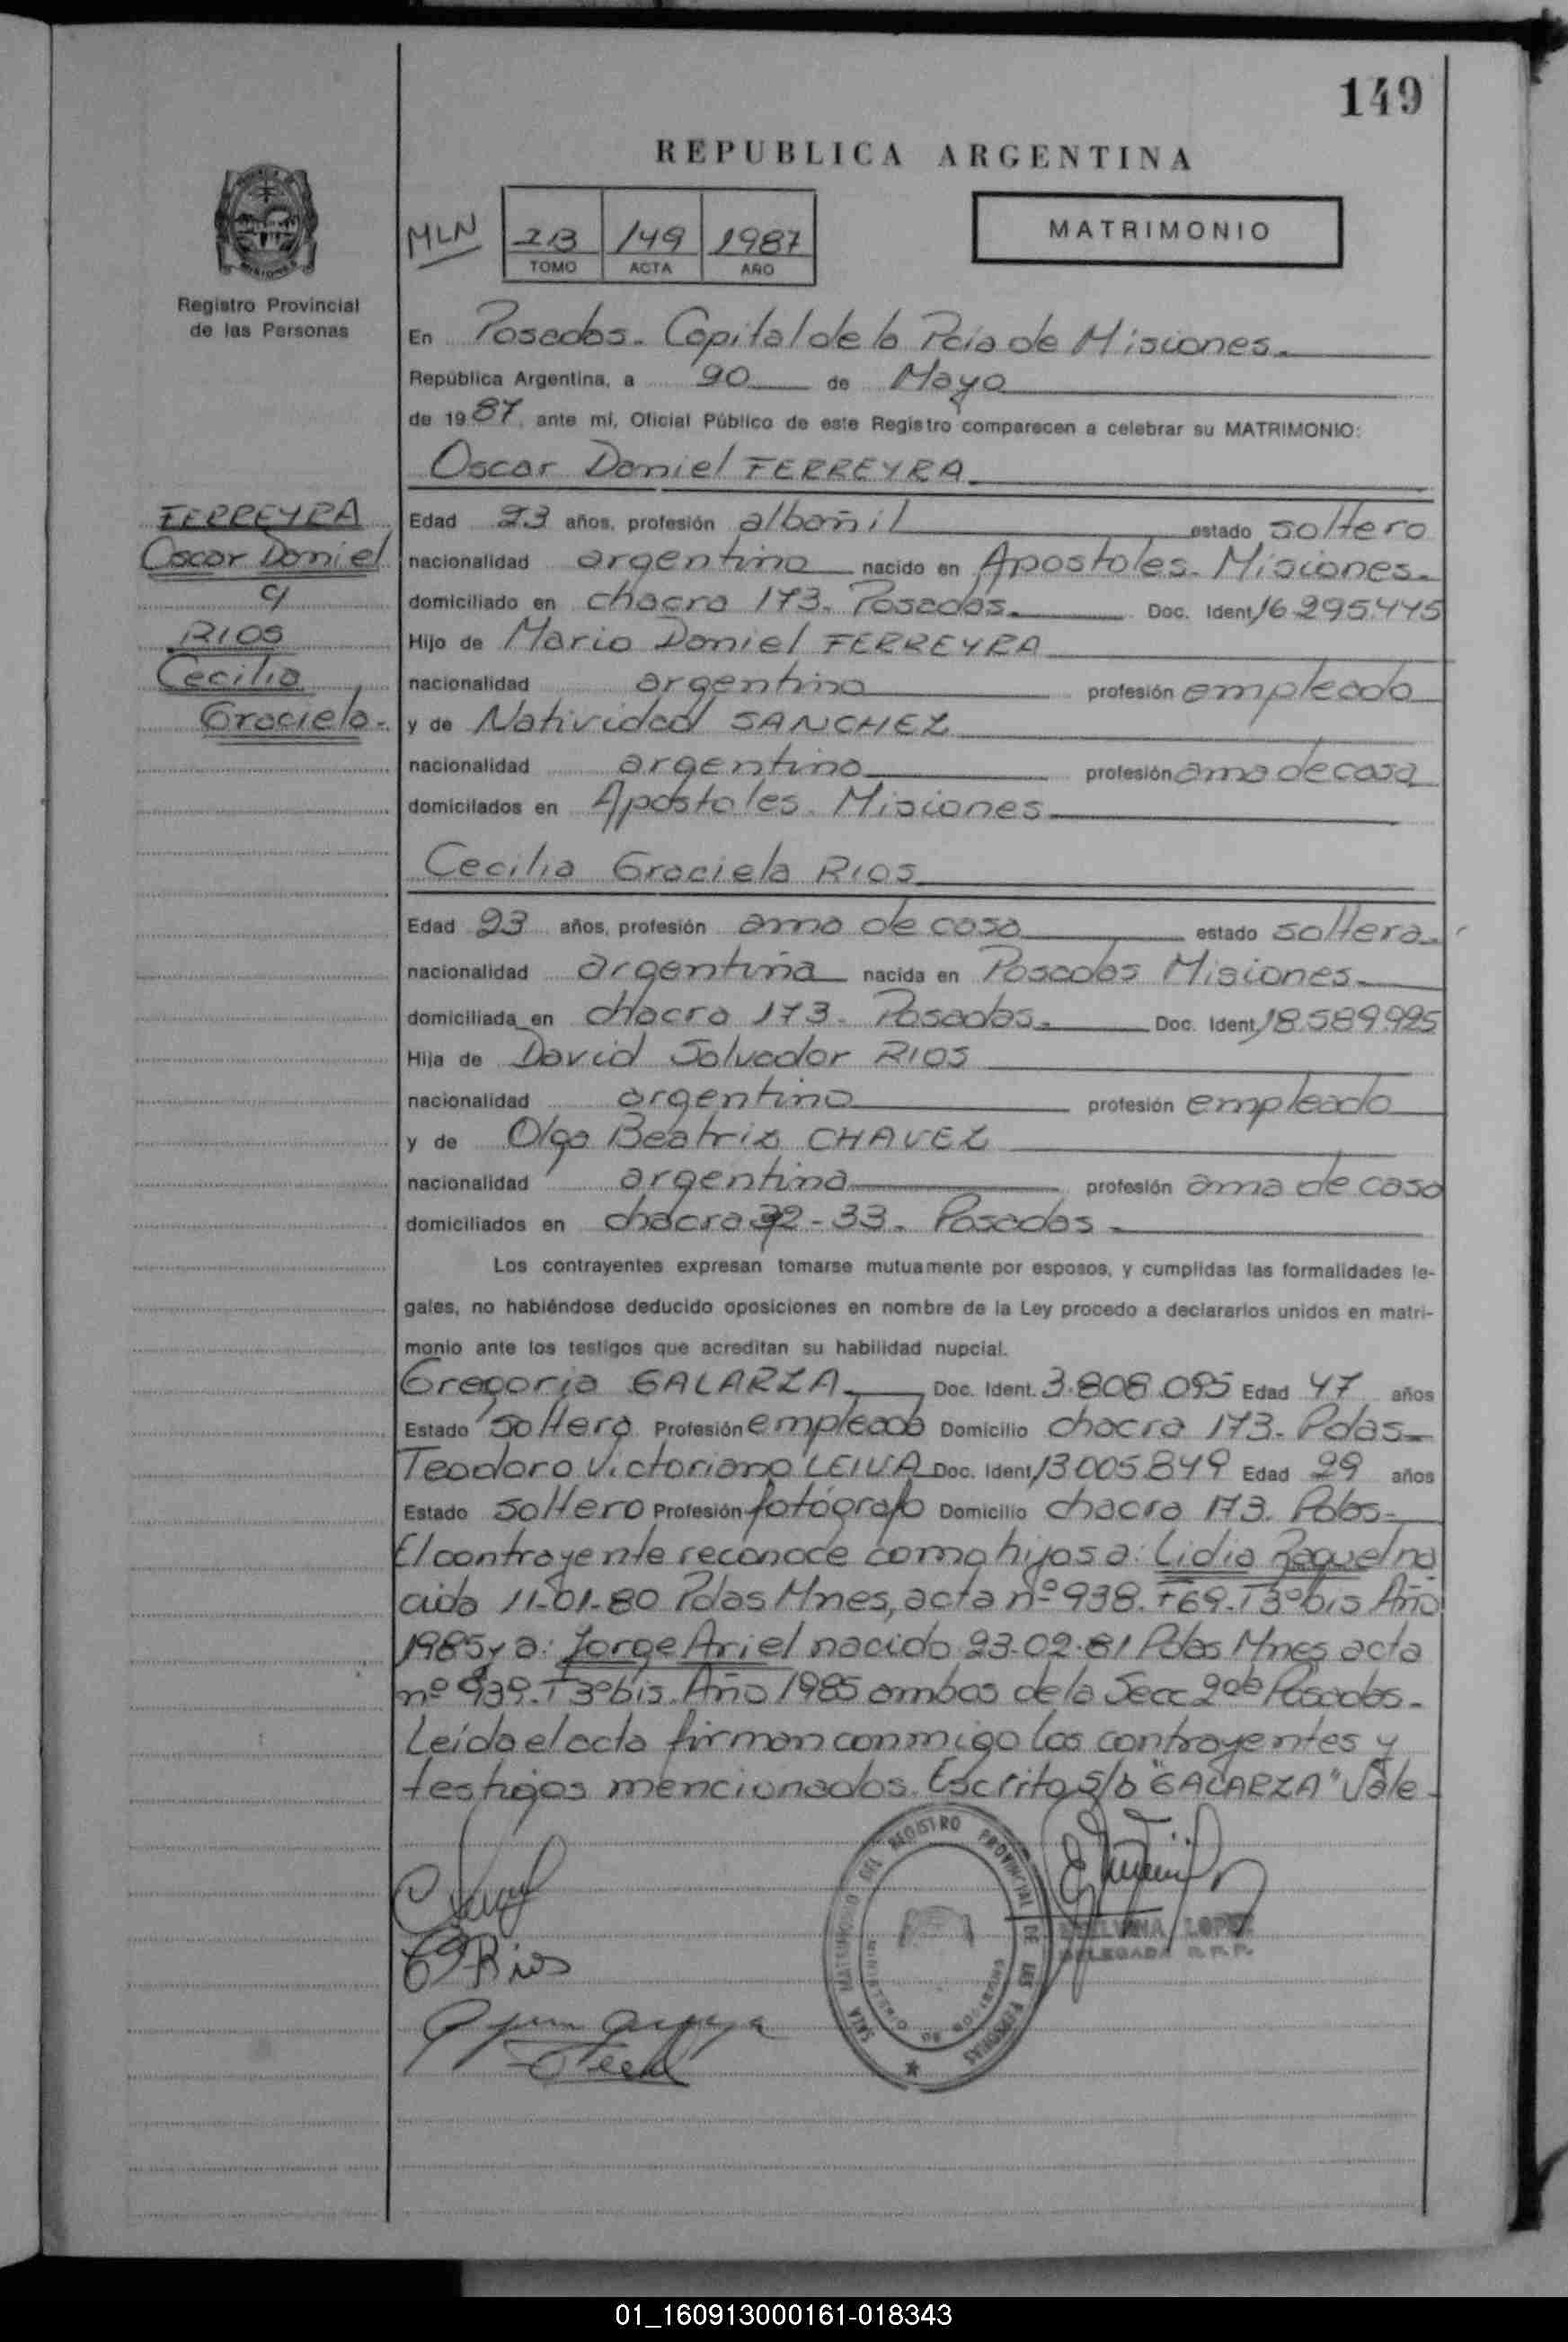 149
REPUBLICA ARGENTINA
MLN
2B 149 1987
TOMO ACTA AÑO
MATRIMONIO
Registro Provincial
de las Personas
En Posadas. Capital de la Pcia de Misiones.
República Argentina, a 20 de Mayo
de 1987, ante mi, Oficial Público de este Registro comparecen a celebrar su MATRIMONIO:
Oscar Daniel FERREYRA
FERREYRA
Oscar Daniel
c/
RIOS
Cecilia
Graciela.
Edad 23 años, profesión albañil estado soltero
nacionalidad argentina nacido en Apostoles. Misiones.
domiciliado en chacra 173. Posadas. Doc. Ident. 16.295.445
Hijo de Mario Daniel FERREYRA
nacionalidad argentino profesión empleado
y de Natividad SANCHEZ
nacionalidad argentina profesión ama de casa
domicilados en Apostoles. Misiones
Cecilia Graciela RIOS
Edad 23 años, profesión ama de casa estado soltera.
nacionalidad argentina nacida en Posadas Misiones.
domiciliada en chacra 173. Posadas. Doc. Ident. 18.589.925
Hija de David Salvador RIOS
nacionalidad argentino profesión empleado
y de Olga Beatriz CHAVEZ
nacionalidad argentina profesión ama de casa
domiciliados en chacra 32-33. Posadas.
Los contrayentes expresan tomarse mutuamente por esposos, y cumplidas las formalidades le-
gales, no habiéndose deducido oposiciones en nombre de la Ley procedo a declararlos unidos en matri-
monio ante los testigos que acreditan su habilidad nupcial.
Gregoria GALARZA Doc. Ident. 3.808.095 Edad 47 años
Estado soltera Profesión empleada Domicilio chacra 173. Pdas.
Teodoro Victoriano LEIVA Doc. Ident. 13.005.849 Edad 29 años
Estado soltero Profesión fotógrafo Domicilio chacra 173. Pdas.
El contrayente reconoce como hijos a: Lidia Raquel na
cida 11-01-80 Pdas Mnes, acta nº 938. F 69. T 3º bis Año
1985 y a: Jorge Ariel nacido 23-02-81 Pdas Mnes acta
nº 939. T 3º bis. Año 1985 ambos de la Secc 2da Posadas.
Leída el acta firman conmigo los contrayentes y
testigos mencionados. Escrito s/b "GALARZA" Vale.
C G Rios
SALA MATRIMONIO DEL REGISTRO PROVINCIAL DE LAS PERSONAS
MINISTERIO DE GOBIERNO
LOPEZ
DELEGADA R.P.P.
01_160913000161-018343